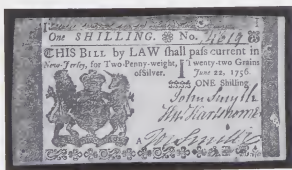 One SHILLING. No. 4619
THIS BILL by LAW ſhall paſs current in
New-Jerſey, for Two-Penny-weight, Twenty-two Grains
of Silver. June 22, 1756.
ONE Shilling
John Smyth
Hartshorne
A